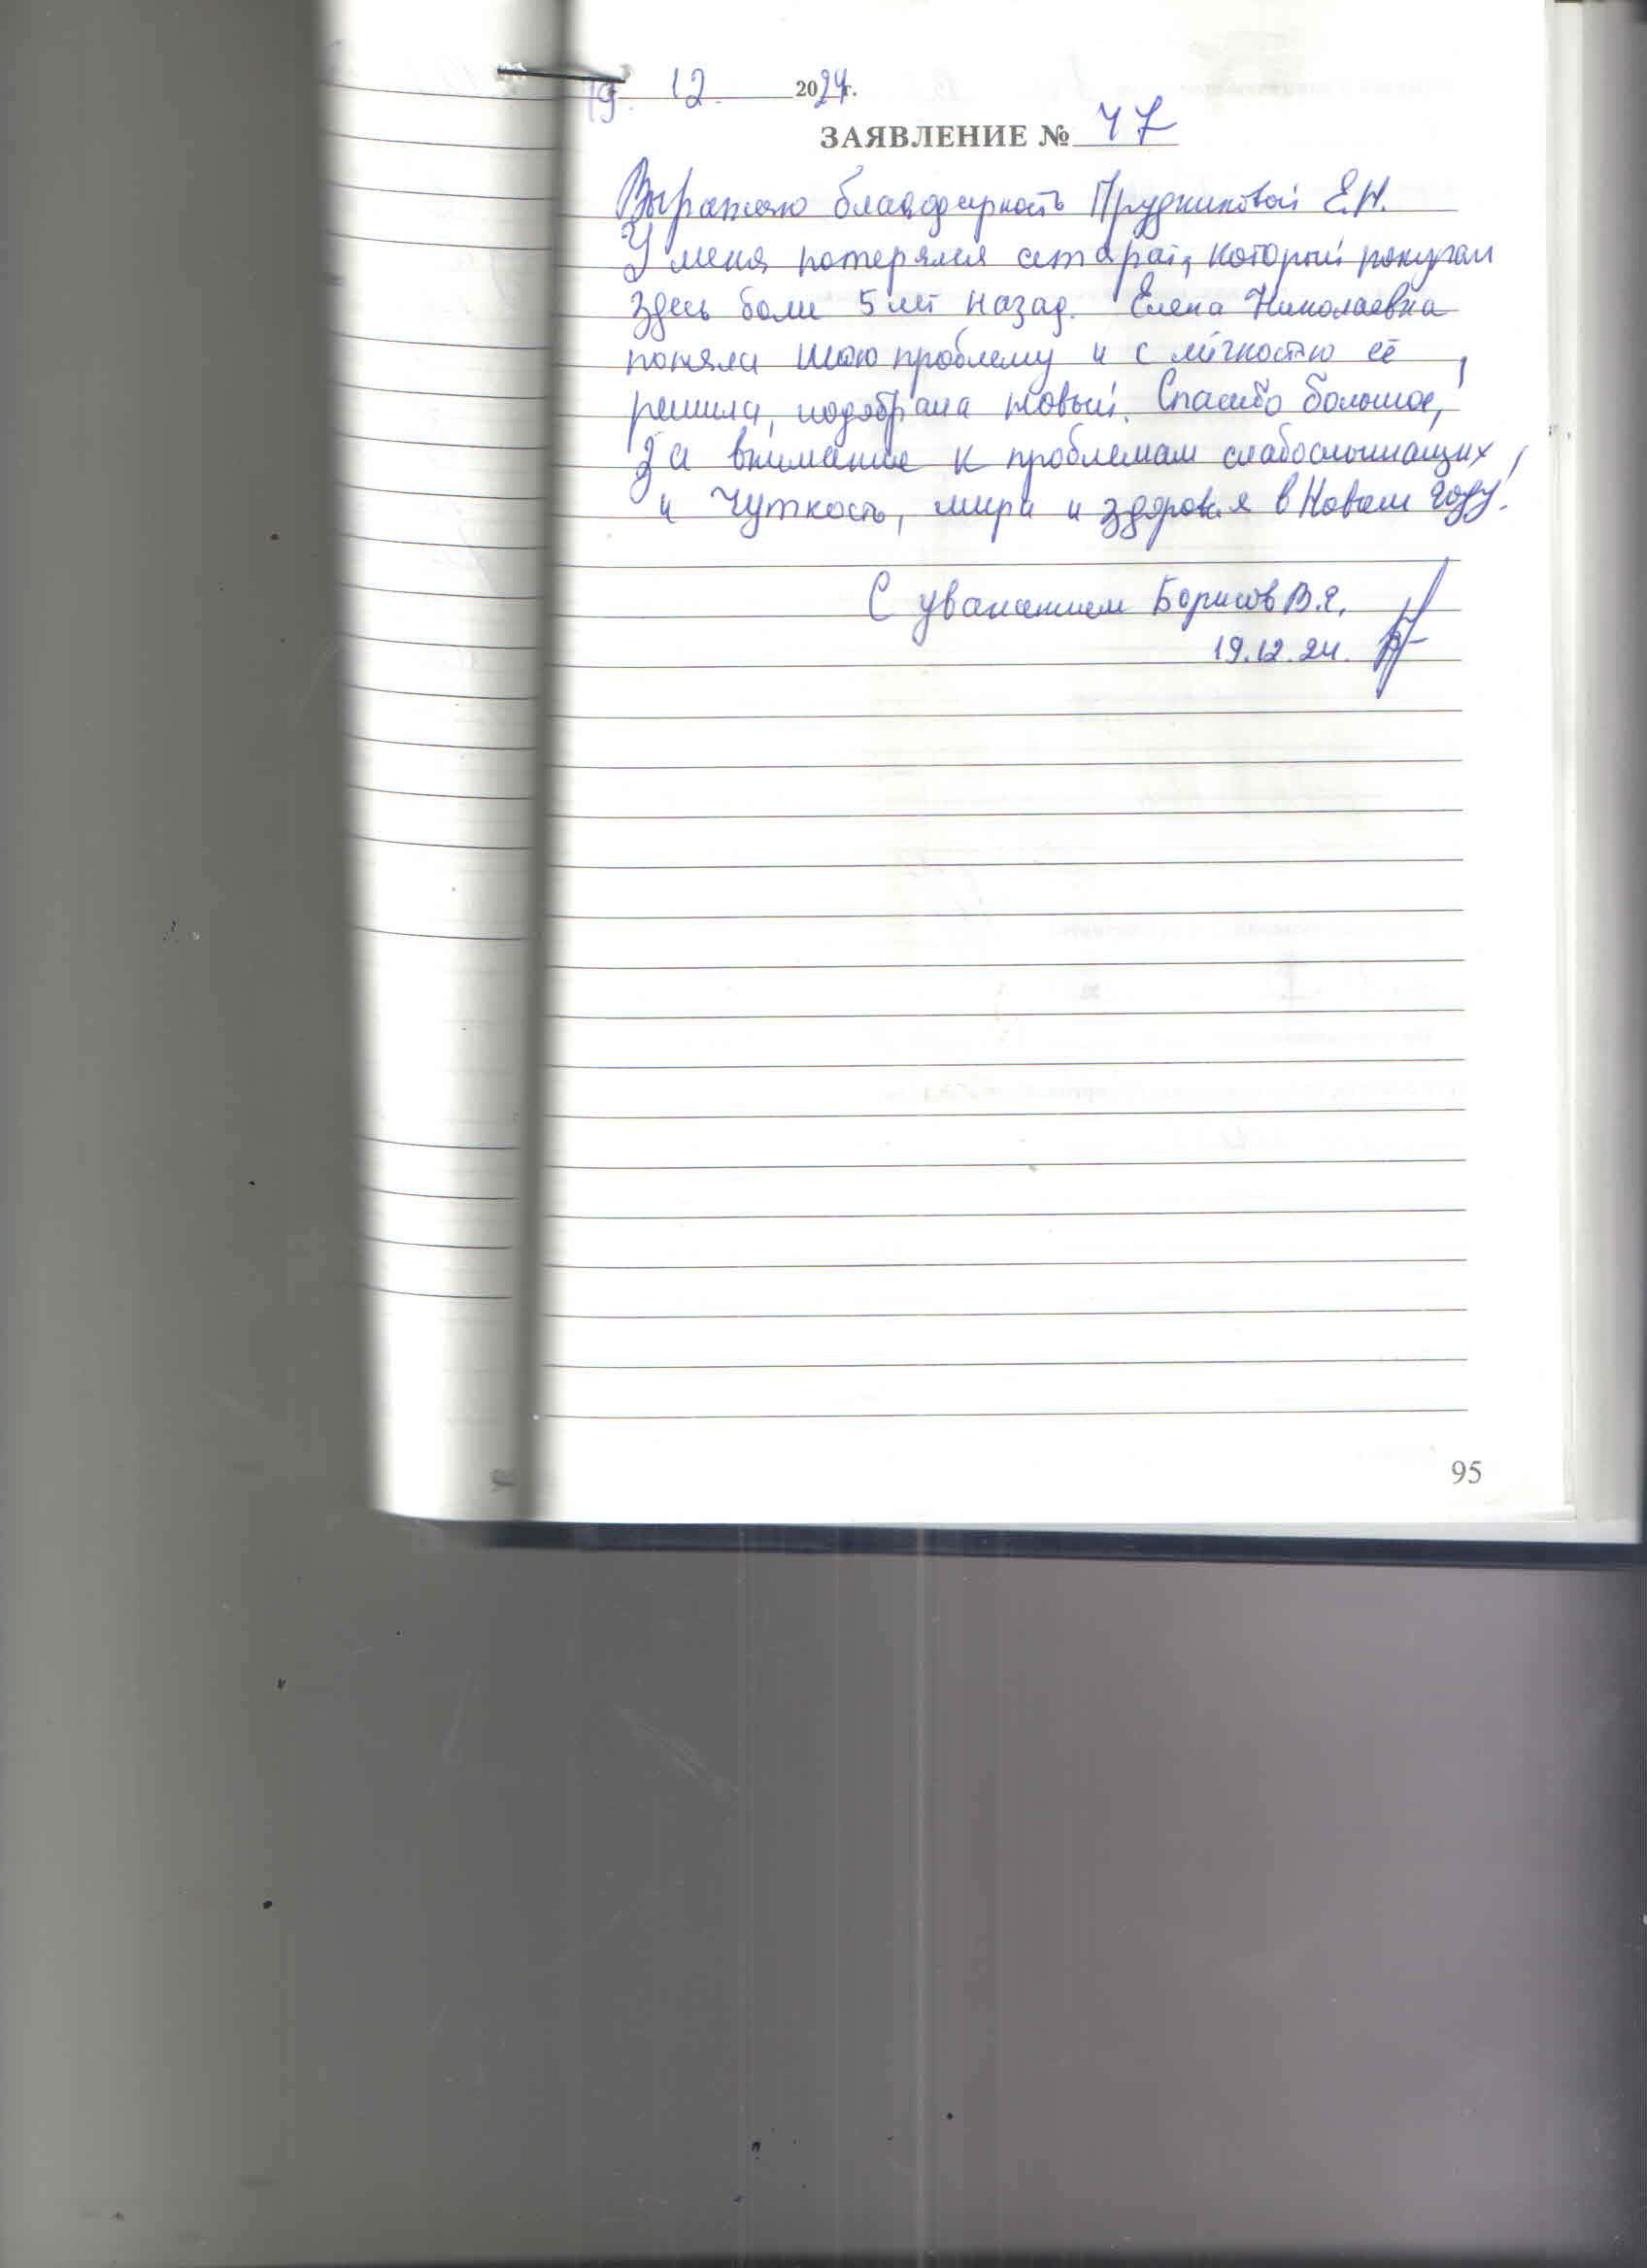 19. 12. 2024г.
ЗАЯВЛЕНИЕ № 47
Выражаю благодарность Прудниковой Е.Н.
У меня потерялся старый, который покупал
здесь боле 5 лет назад. Елена Николаевна
поняла мою проблему и с лёгкостью её
решила, подобрала новый. Спасибо большое,
за внимание к проблемам слабослышащих,
и чуткость, мира и здоровья в Новом году!
С уважением Борисов В.Я.
19.12.24.
95